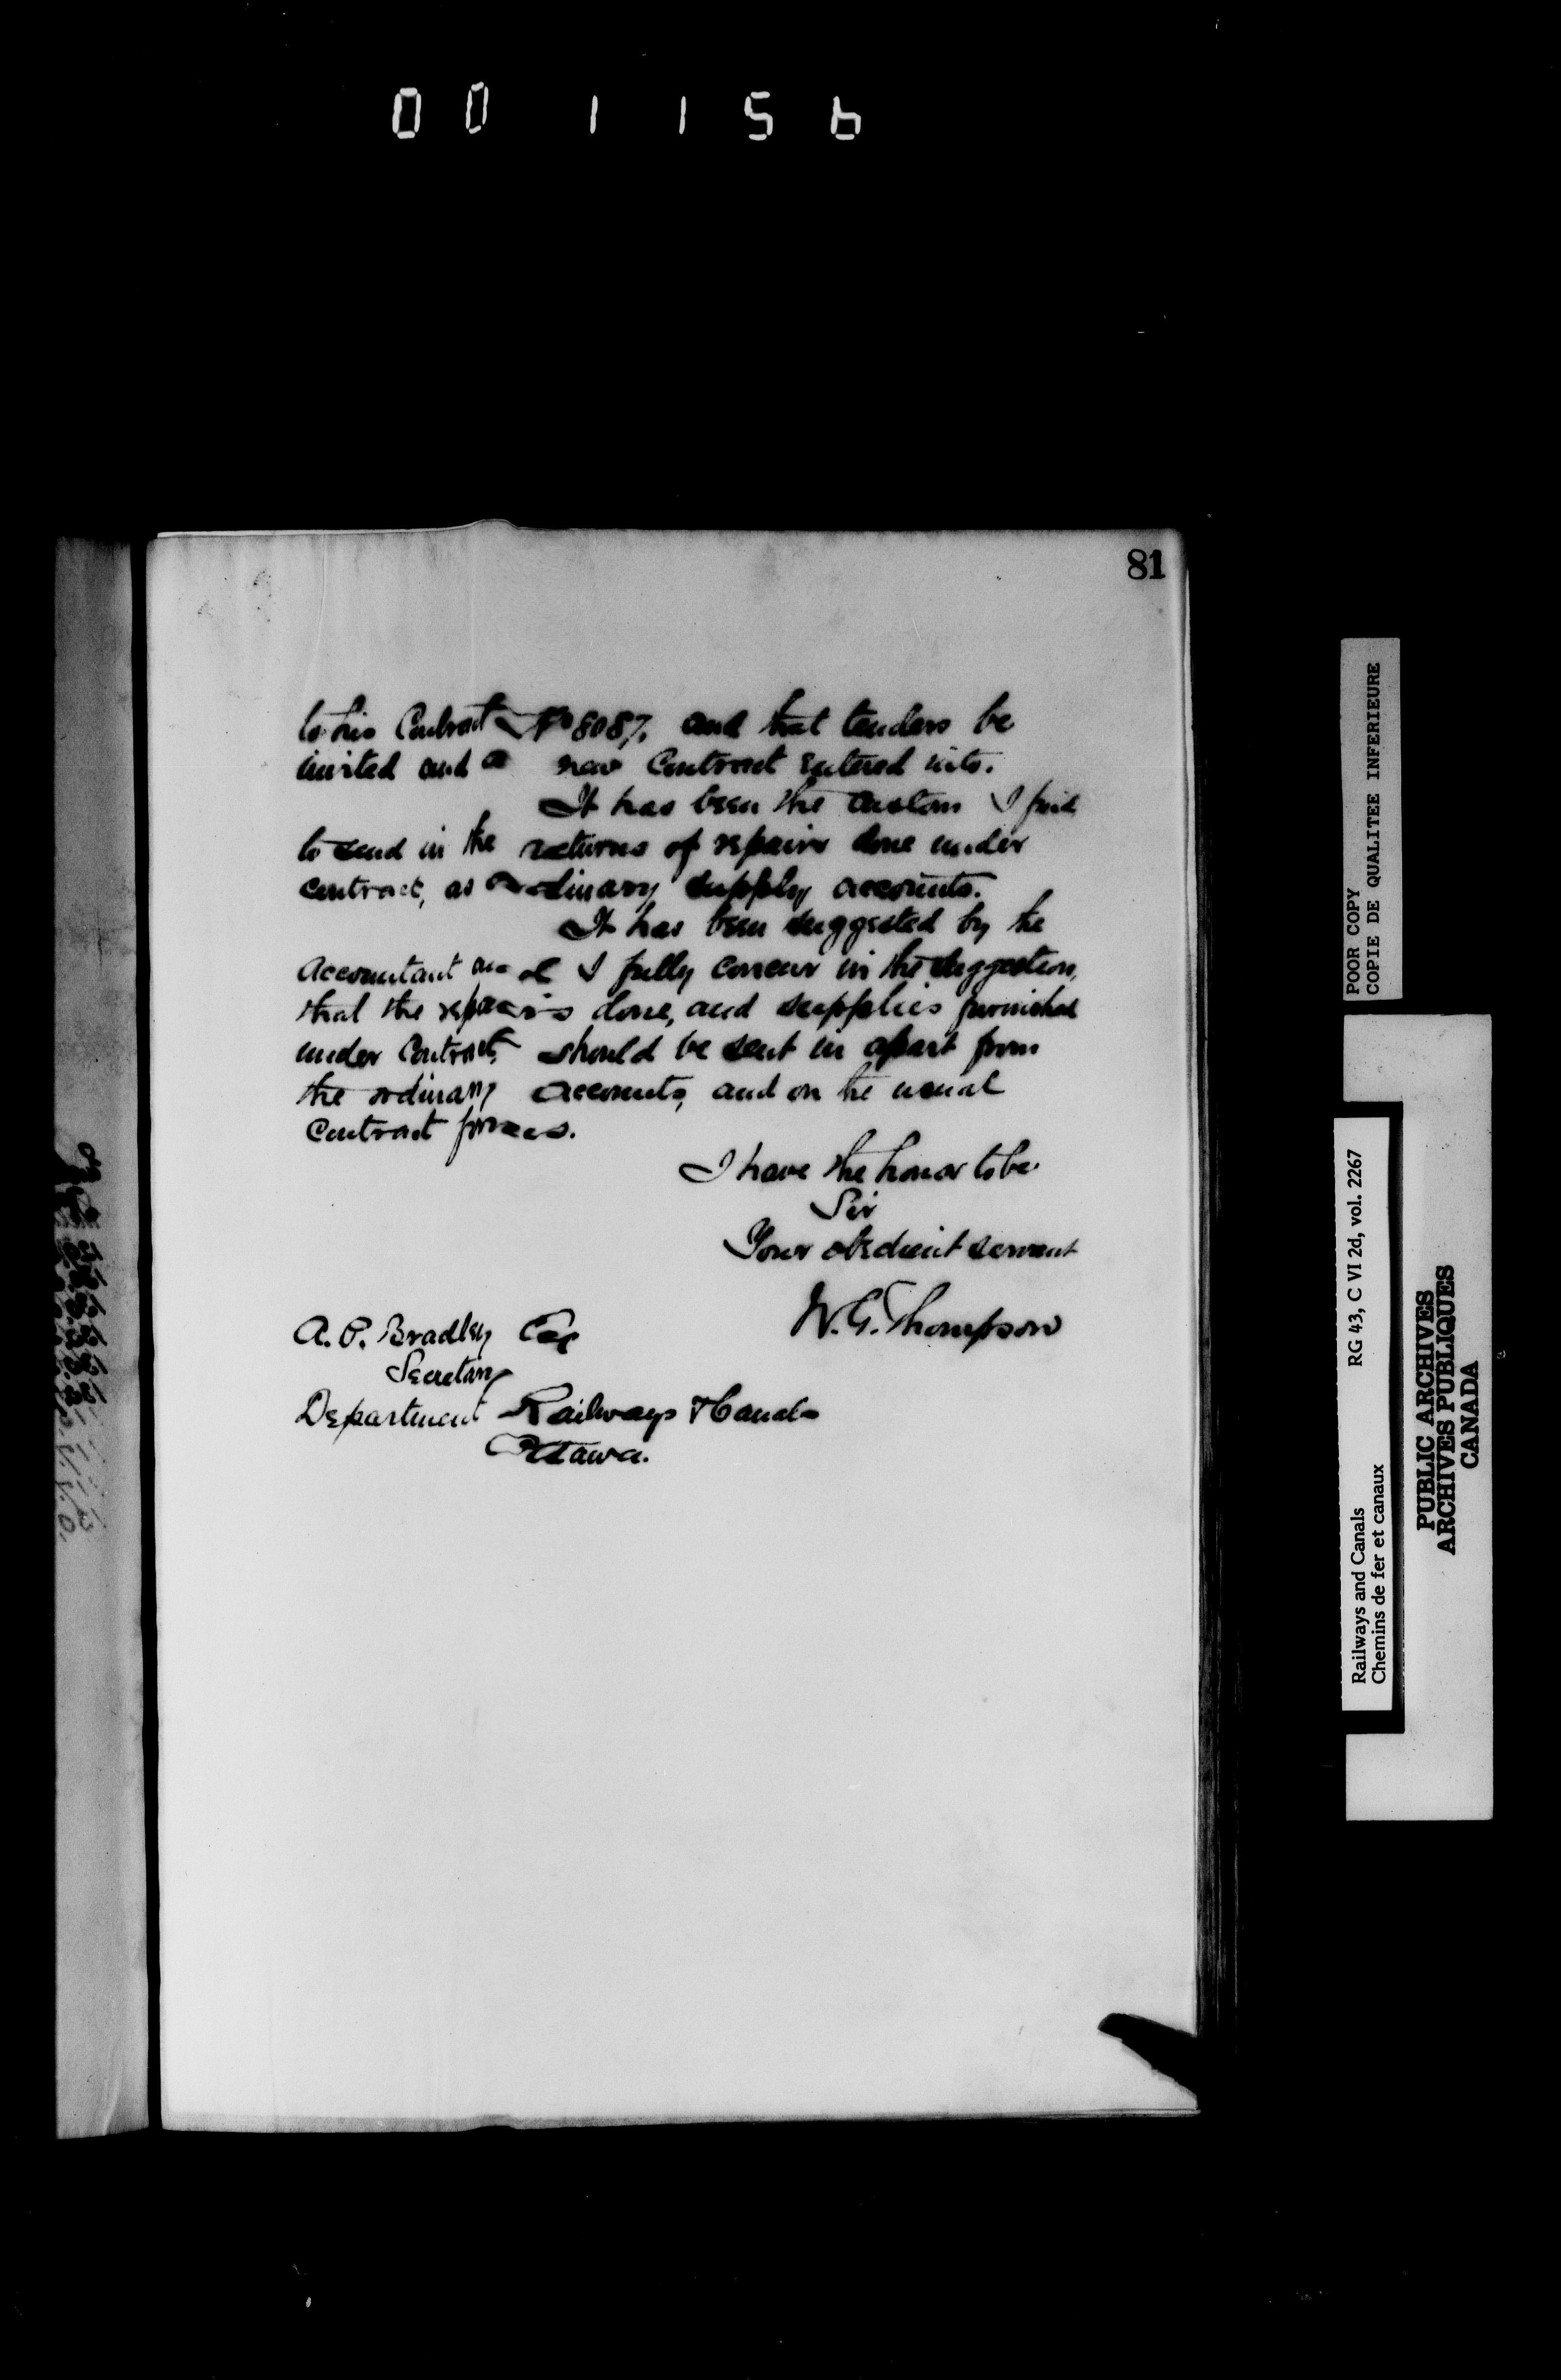 001156
81
to his Contract No 8087, and that tenders be
invited and a new Contract entered into.
It has been the custom I find
to send in the returns of repairs done under
contract, as ordinary supply accounts.
It has been suggested by the
Accountant and I fully concur in the suggestion,
that the repairs done, and supplies furnished
under Contract, should be sent in apart from
the ordinary accounts, and on the usual
Contract forms.
I have the honor to be
Sir
Your obedient servant
W. G. Thompson
A. P. Bradley Esq
Secretary
Department Railways & Canals
Ottawa.
POOR COPY
COPIE DE QUALITEE INFERIEURE
Railways and Canals RG 43, C VI 2d, vol. 2267
Chemins de fer et canaux
PUBLIC ARCHIVES
ARCHIVES PUBLIQUES
CANADA